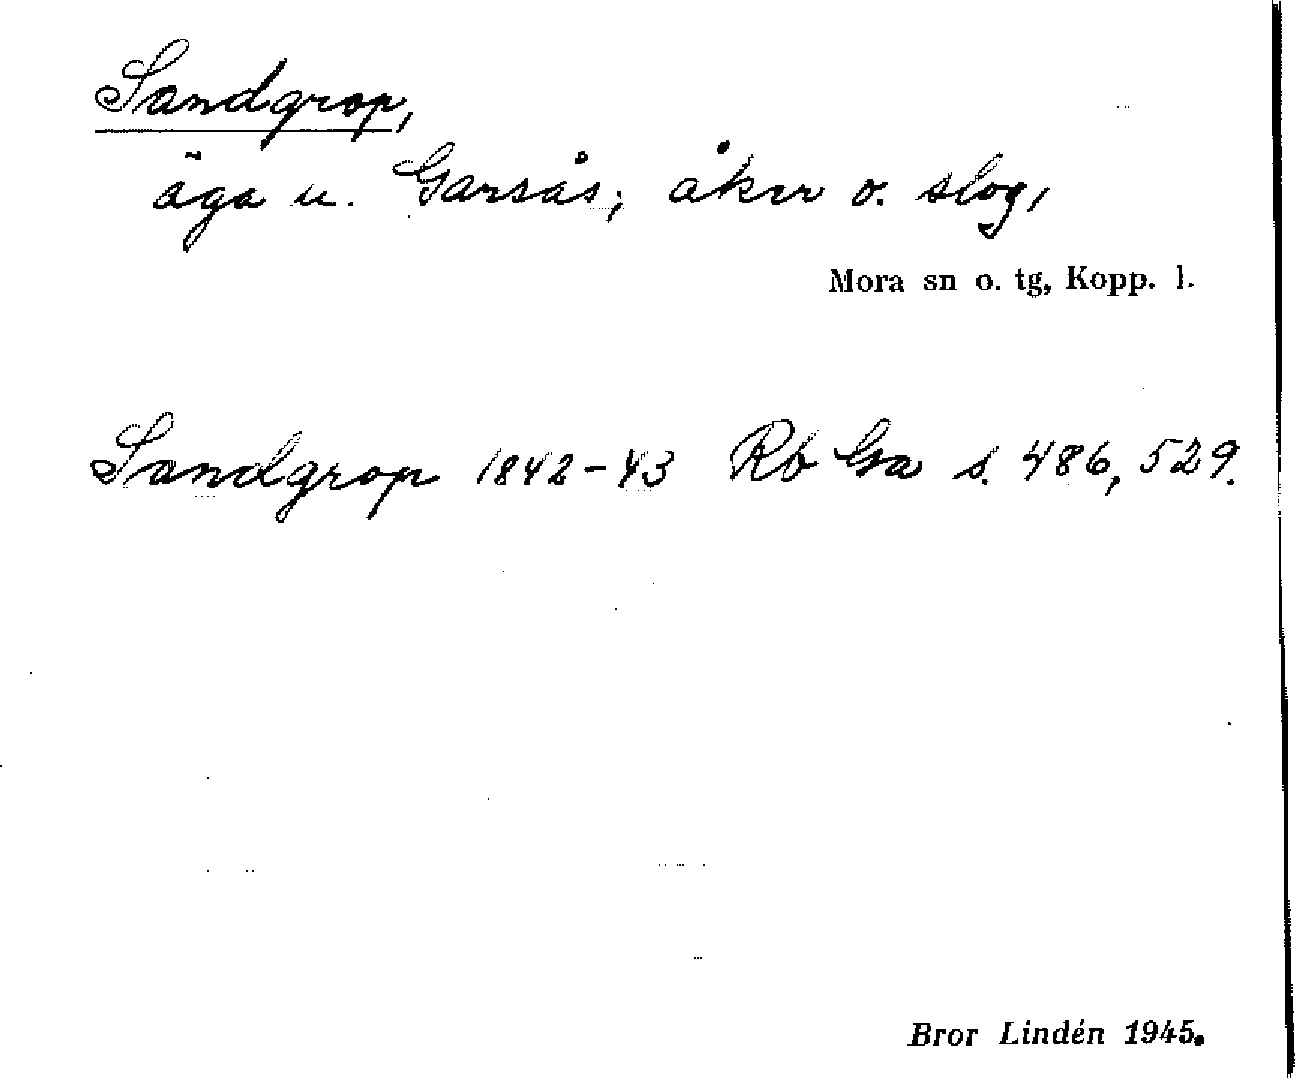 Sandgrop,
äga u. Garsås; åker o. slog,
Mora sn o. tg, Kopp. l.
Sandgrop 1842-43 Rb Ga s. 486, 529.
Bror Lindén 1945.